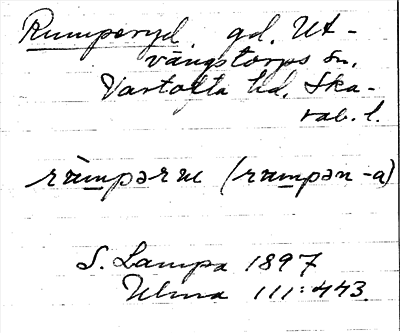 Rumperyd gd. Ut-
vängstorps sn.
Vartofta hd. Ska-
rab. l.
rùmpərue (rumpən -a)
S. Lampa 1897
Ulma 111:443.